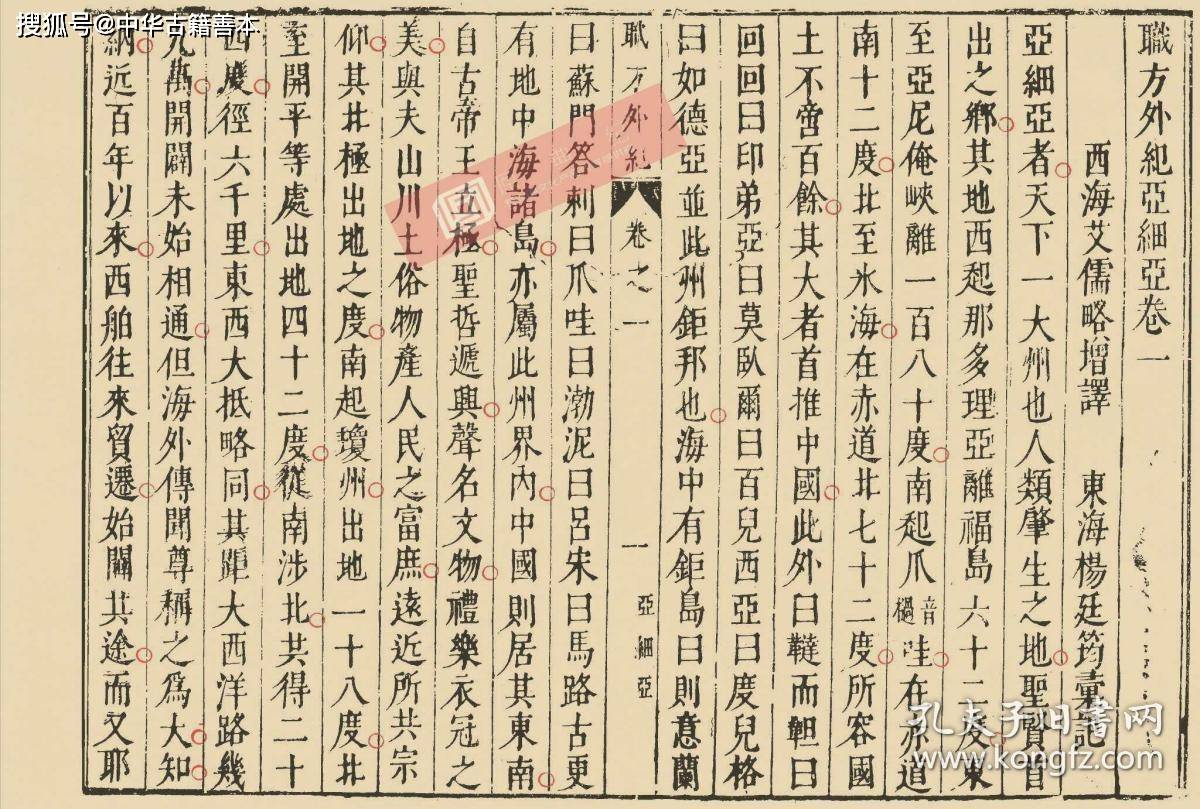 搜狐号@中华古籍善本
職方外紀亞細亞卷一
西海艾儒略增譯 東海楊廷筠彙記
亞細亞者天下一大州也人類肇生之地聖賢首
出之鄉其地西起那多理亞離福島六十二度東
至亞尼俺峽離一百八十度南起爪音撾哇在赤道
南十二度北至氷海在赤道北七十二度所容國
土不啻百餘其大者首推中國此外曰韃而靼曰
回回曰印弟亞曰莫臥爾曰百兒西亞曰度兒格
曰如德亞並此州鉅邦也海中有鉅島曰則意蘭
職方外紀 卷之一 一 亞細亞
曰蘇門答剌曰爪哇曰渤泥曰呂宋曰馬路古更
有地中海諸島亦屬此州界內中國則居其東南
自古帝王立極聖哲遞興聲名文物禮樂衣冠之
美與夫山川土俗物產人民之富庶遠近所共宗
仰其北極出地之度南起瓊州出地一十八度北
至開平等處出地四十二度從南涉北共得二十
四度徑六千里東西大抵略同其距大西洋路幾
九萬開闢未始相通但海外傳聞尊稱之爲大知
納近百年以來西舶往來貿遷始闢其途而又耶
孔夫子旧书网
www.kongfz.com